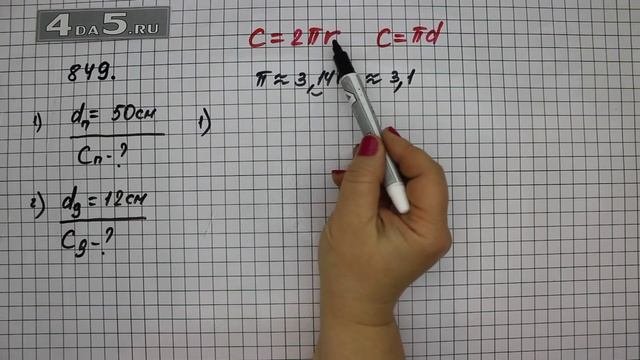 4DA5.RU
849.
C = 2πr    C = πd
π ≈ 3,14 ≈ 3,1
1) dп = 50см    1)
Cп - ?
2) dд = 12см
Cд - ?